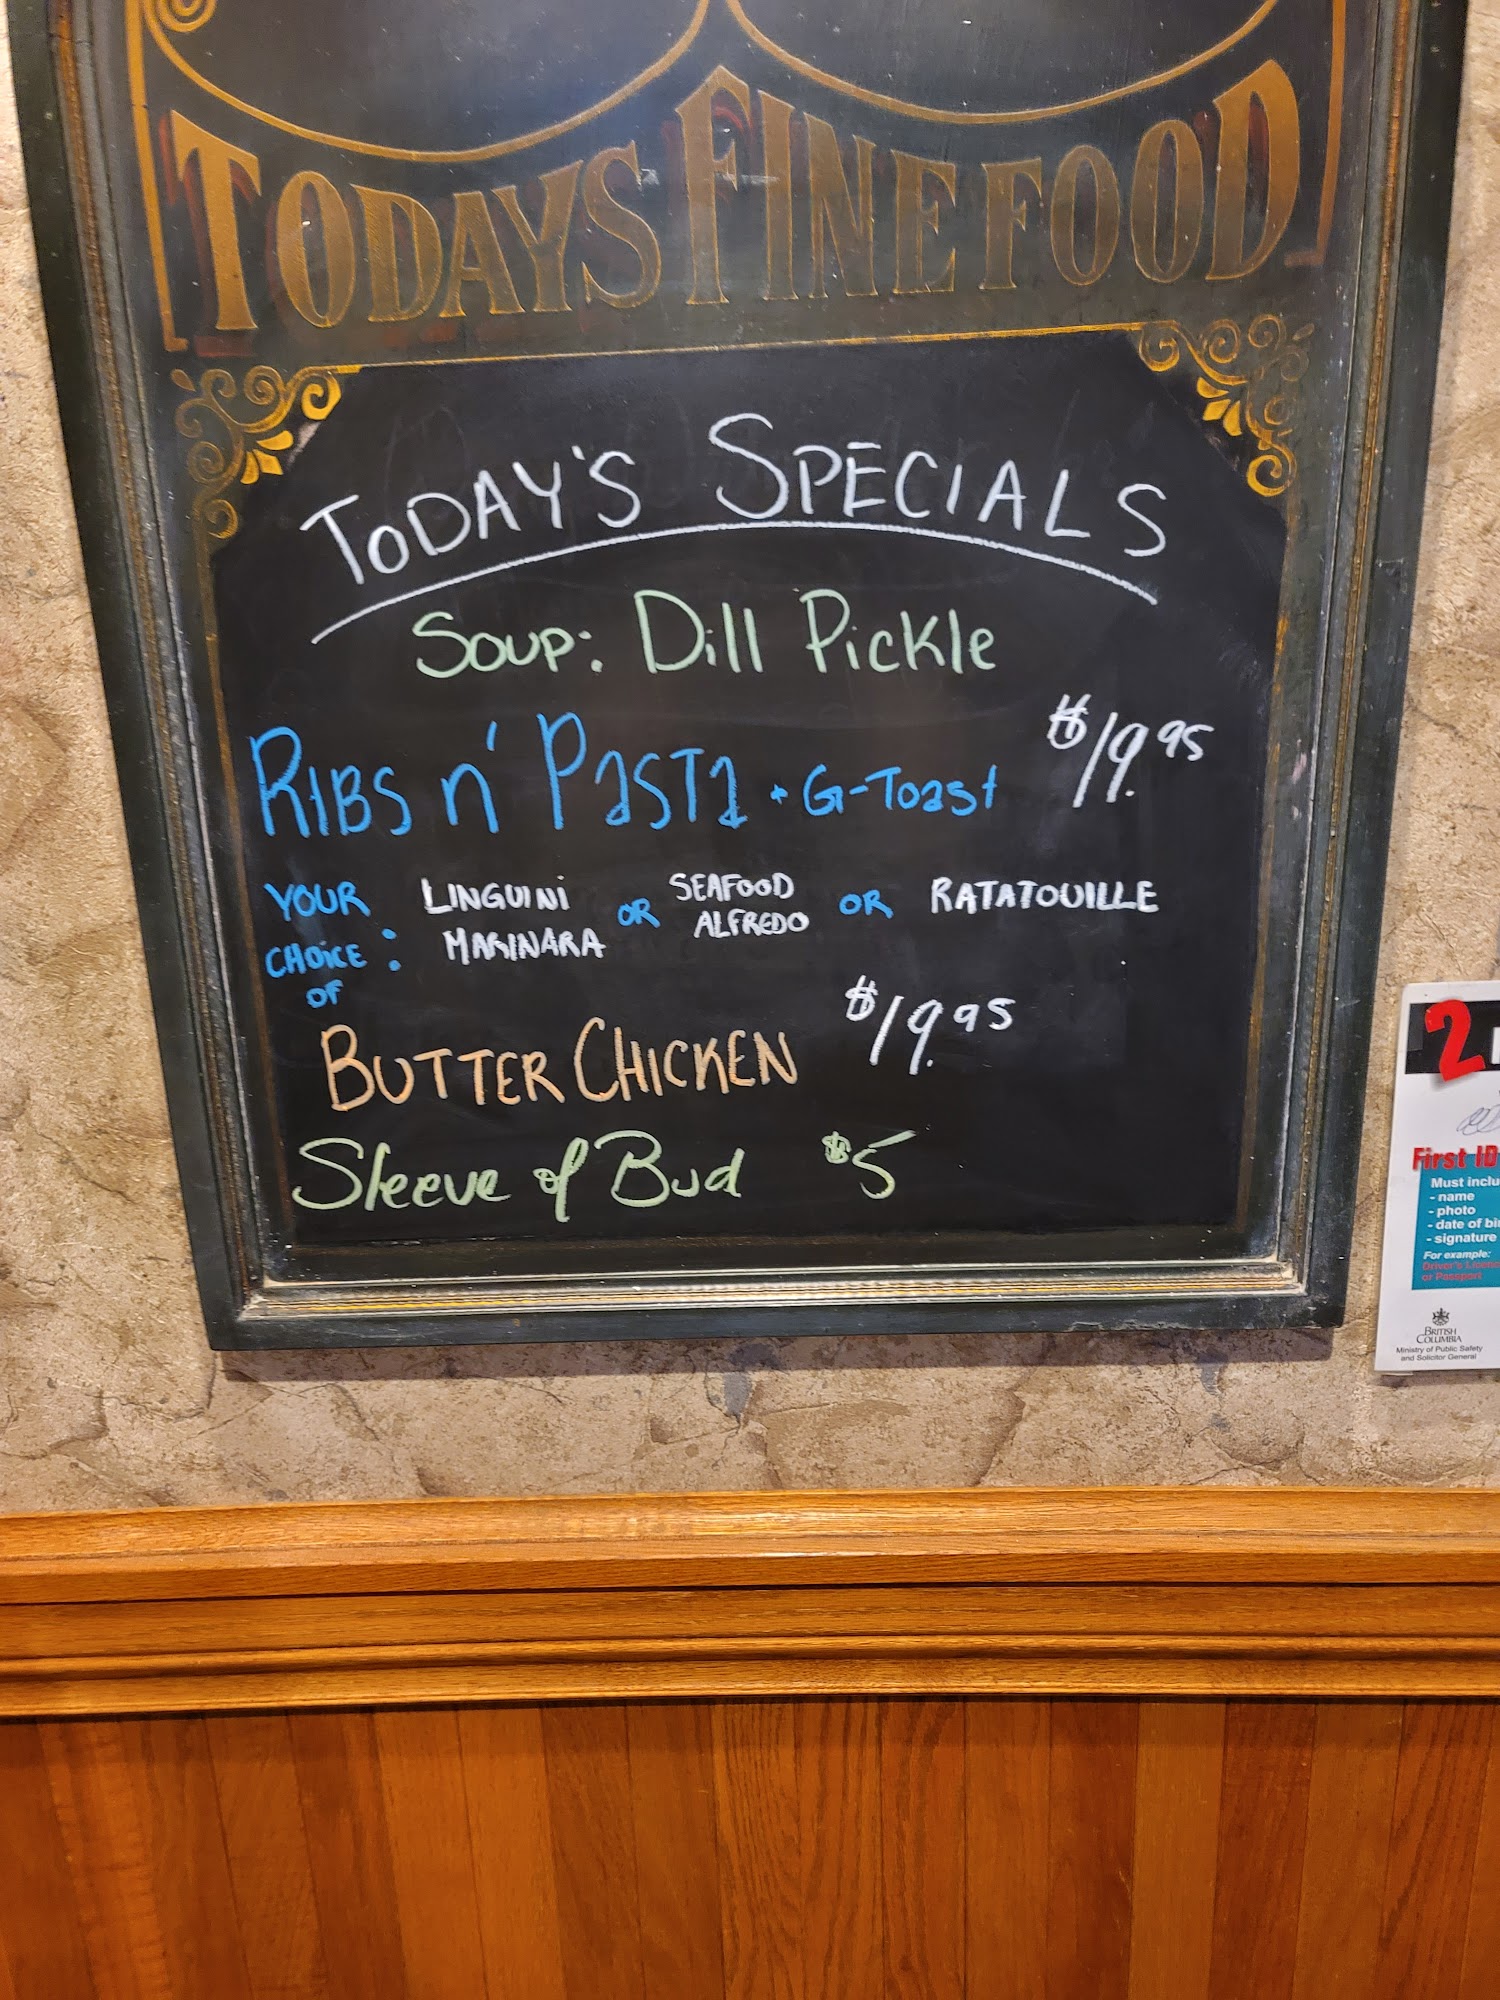 TODAYS FINE FOOD
TODAY'S SPECIALS
SOUP: Dill Pickle
RIBS n' PASTA + G-TOAST $19.95
YOUR CHOICE OF : LINGUINI MARINARA OR SEAFOOD ALFREDO OR RATATOUILLE
BUTTER CHICKEN $19.95
Sleeve of Bud $5
2
First ID
Must
- name
- photo
- date of
- signature
For example:
Driver's
or Passport
BRITISH
COLUMBIA
Ministry of Public Safety
and Solicitor General